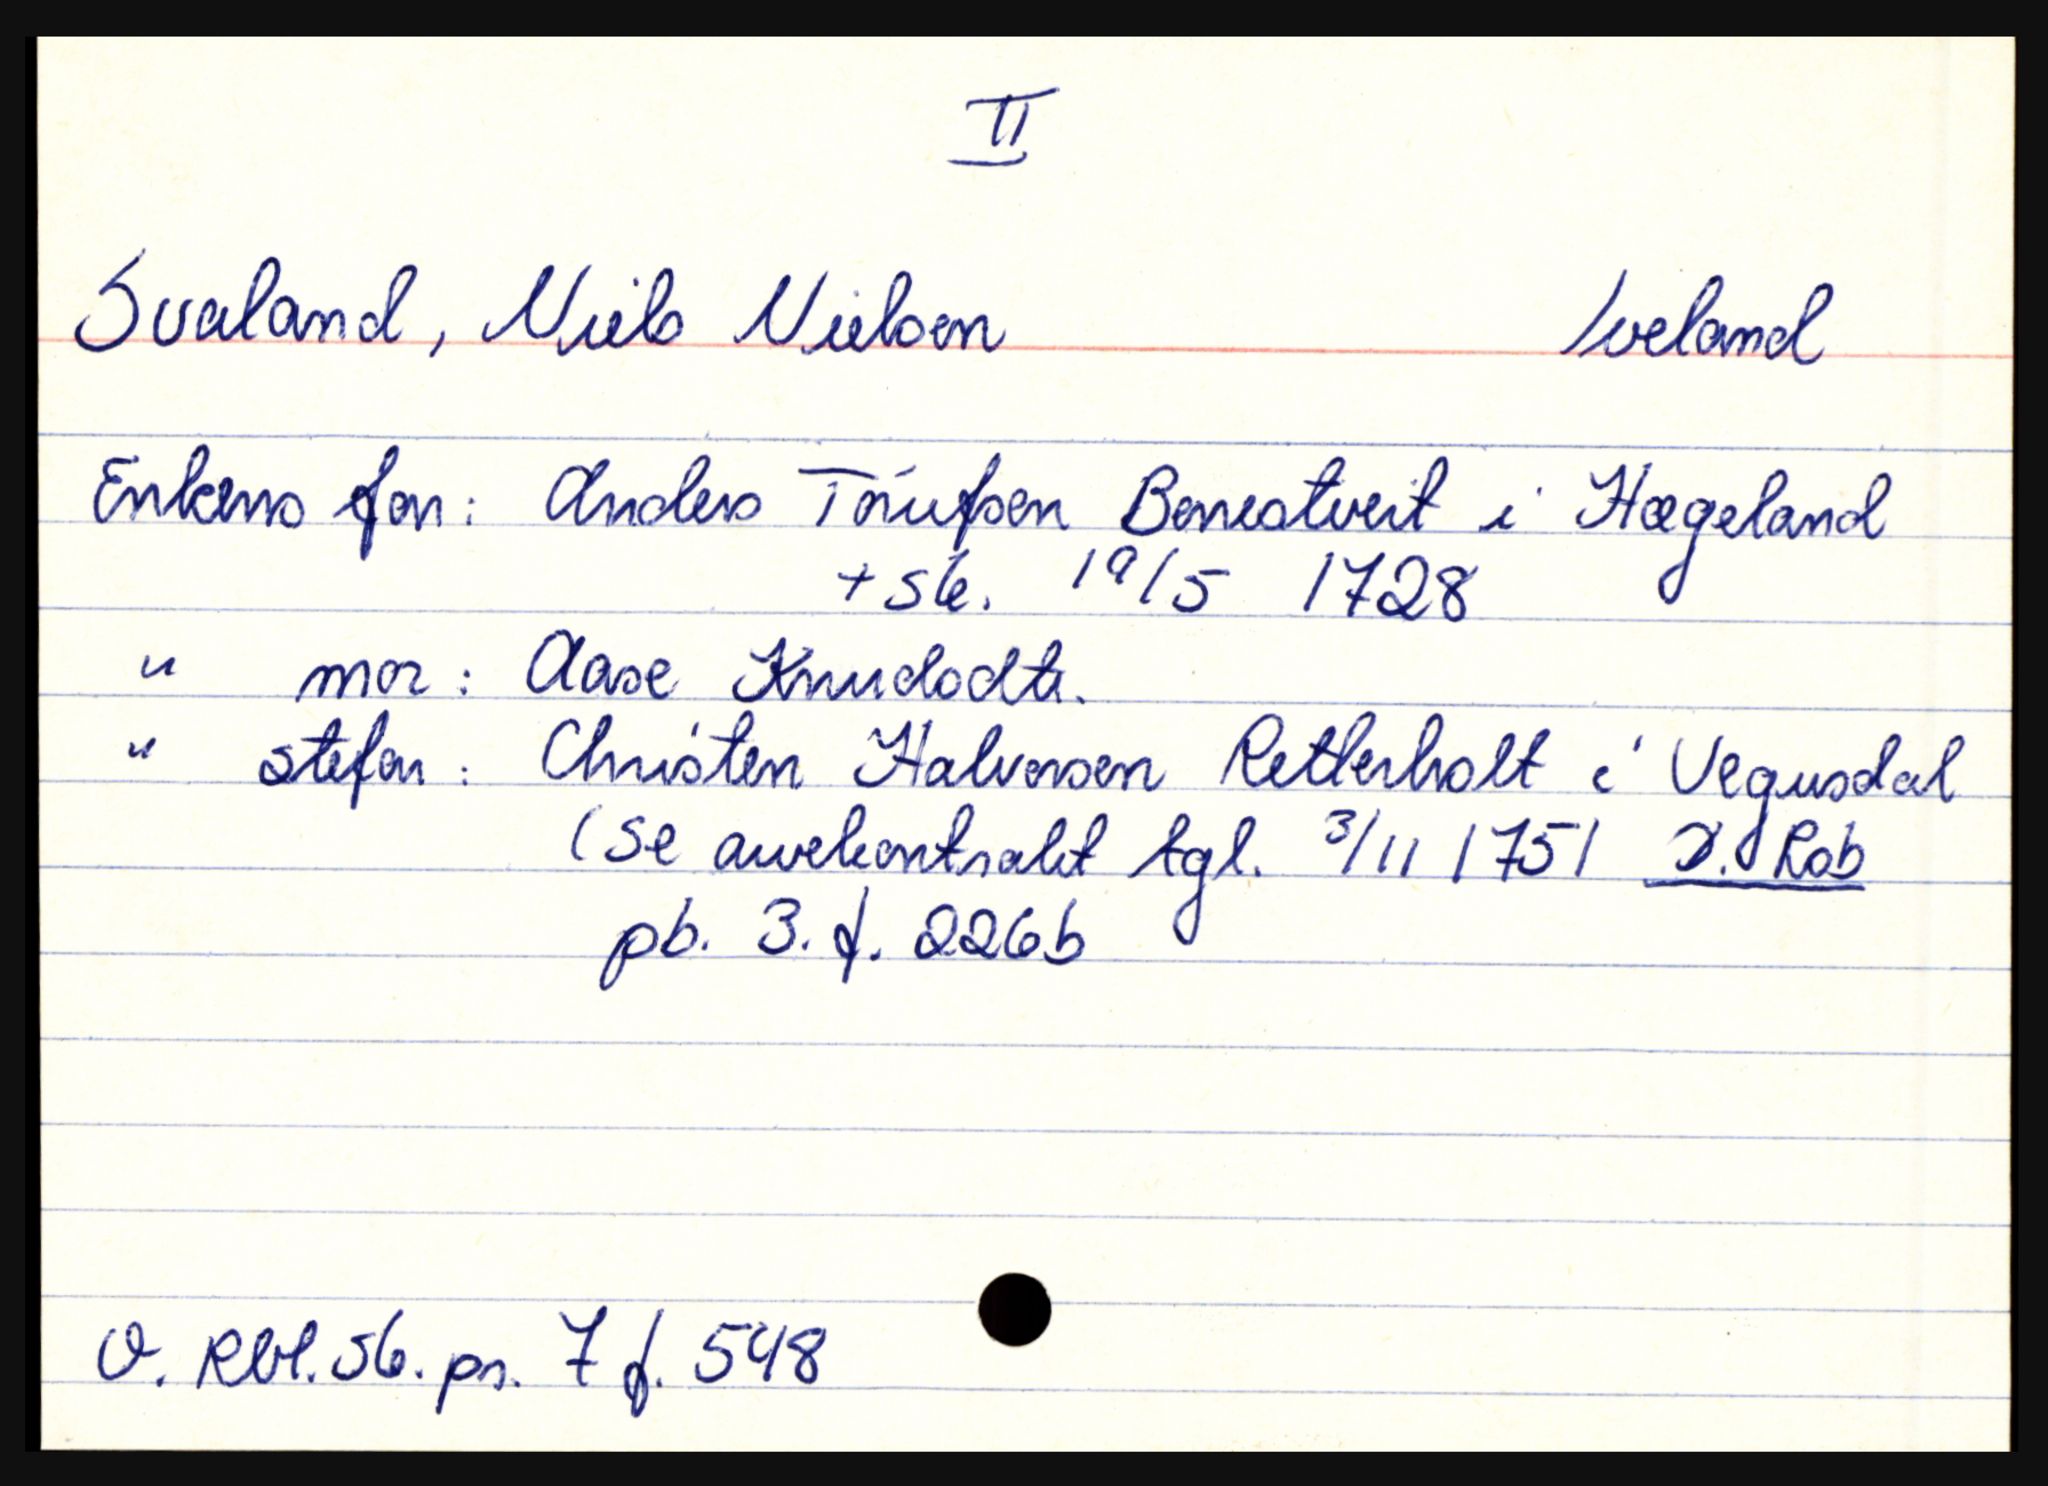 II
Svaland, Niels Nielsen Iveland
Enkens far: Anders Tórufsen Benestveit i Hægeland
+ sk. 19/5 1728
" mor: Aase Knudsdtr.
" stefar: Christen Halvorsen Retterholt i Vegusdal
(se arvekontrakt tgl. 3/11 1751 Rob
pb. 3. f. 226b
O. Rbl. sk. pr. 7 f. 548